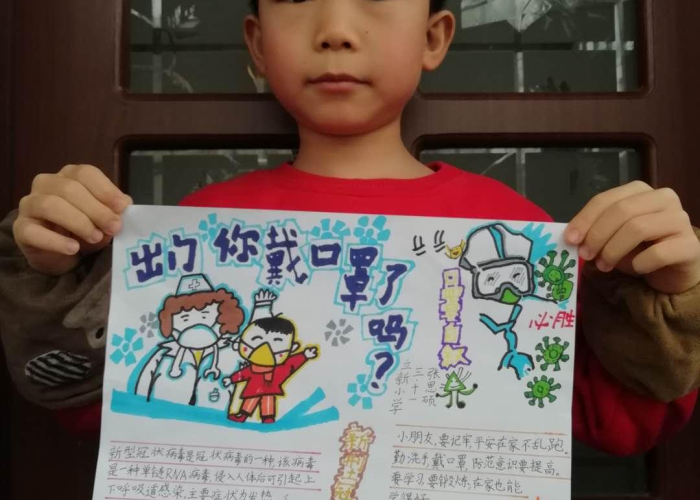 出门你戴口罩了吗？
口罩
必胜
三张
新十思
小一硕
学
新型冠状病毒是冠状病毒的一种，该病毒
是一种单链RNA病毒，侵入人体后可引起上
下呼吸道感染，主要症状为发热
新型
小朋友，要记牢，平安在家不乱跑。
勤洗手，戴口罩，防范意识要提高。
要学习，要锻炼，在家也能